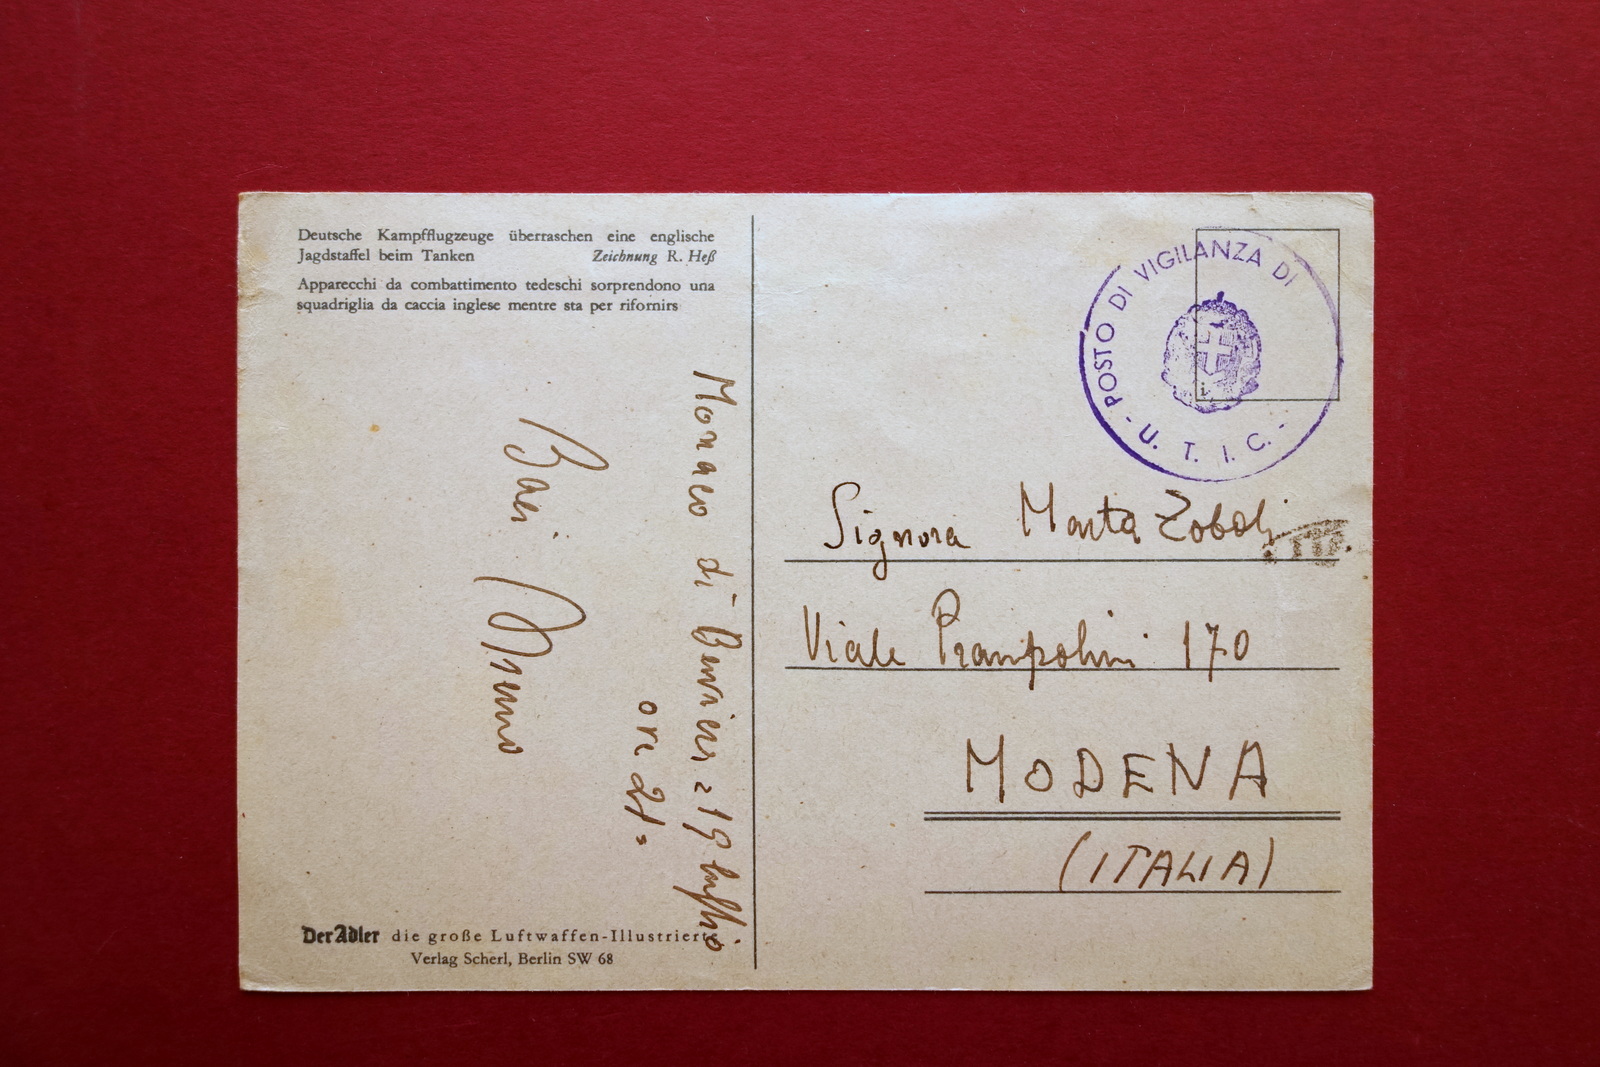 Deutsche Kampfflugzeuge überraschen eine englische
Jagdstaffel beim Tanken Zeichnung R. Heß
Apparecchi da combattimento tedeschi sorprendono una
squadriglia da caccia inglese mentre sta per rifornirs
Monaco di Baviera 19 luglio
ore 21=
Baci Bruno
Der Adler die große Luftwaffen-Illustrierte
Verlag Scherl, Berlin SW 68
- POSTO DI VIGILANZA DI -
U. T. I. C.
i
Signora Marta Zoboli
Viale Prampolini 170
MODENA
(ITALIA)